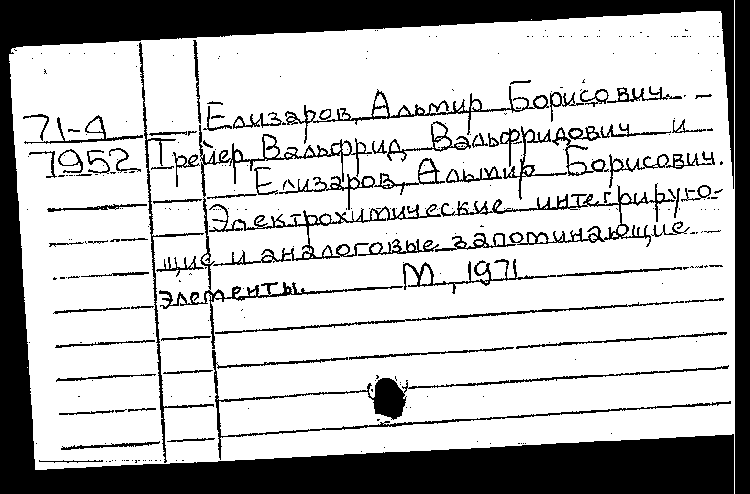 Елизаров, Альмир Борисович. -
71-4
7952
Трейер, Вальфрид Вальфридович и
Елизаров, Альмир Борисович.
Электрохимические интегрирую-
щие и аналоговые запоминающие
элементы. М, 1971